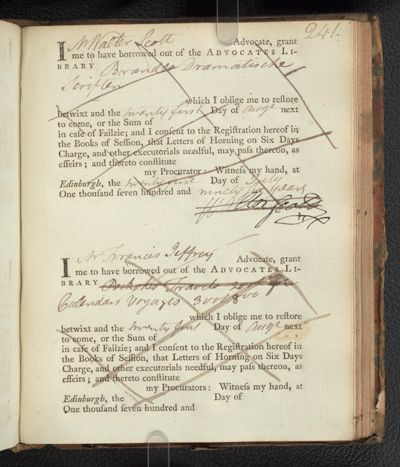 241.
I Mr Walter Scott Advocate, grant
me to have borrowed out of the ADVOCATES LI-
BRARY Brandes Dramatische
Scriften
which I oblige me to restore
betwixt and the twenty first Day of Augt next
to come, or the Sum of
in case of Failzie; and I consent to the Registration hereof in
the Books of Session, that Letters of Horning on Six Days
Charge, and other executorials needful, may pass thereon, as
effeirs; and thereto constitute
my Procurator: Witness my hand, at
Edinburgh, the twenty first Day of July
One thousand seven hundred and ninety years
I Mr Francis Jeffrey Advocate, grant
me to have borrowed out of the ADVOCATES LI-
BRARY Travels
Callendars Voyages
which I oblige me to restore
betwixt and the twenty first Day of Augt next
to come, or the Sum of
in case of Failzie; and I consent to the Registration hereof in
the Books of Session, that Letters of Horning on Six Days
Charge, and other executorials needful, may pass thereon, as
effeirs; and thereto constitute
my Procurators: Witness my hand, at
Edinburgh, the Day of
One thousand seven hundred and